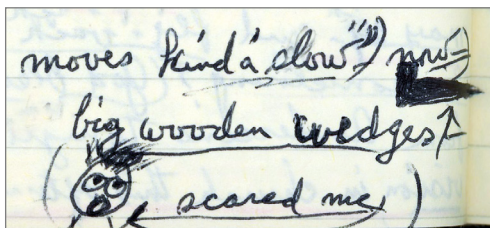 moves kinda slow")) now)
big wooden wedges
( scared me )